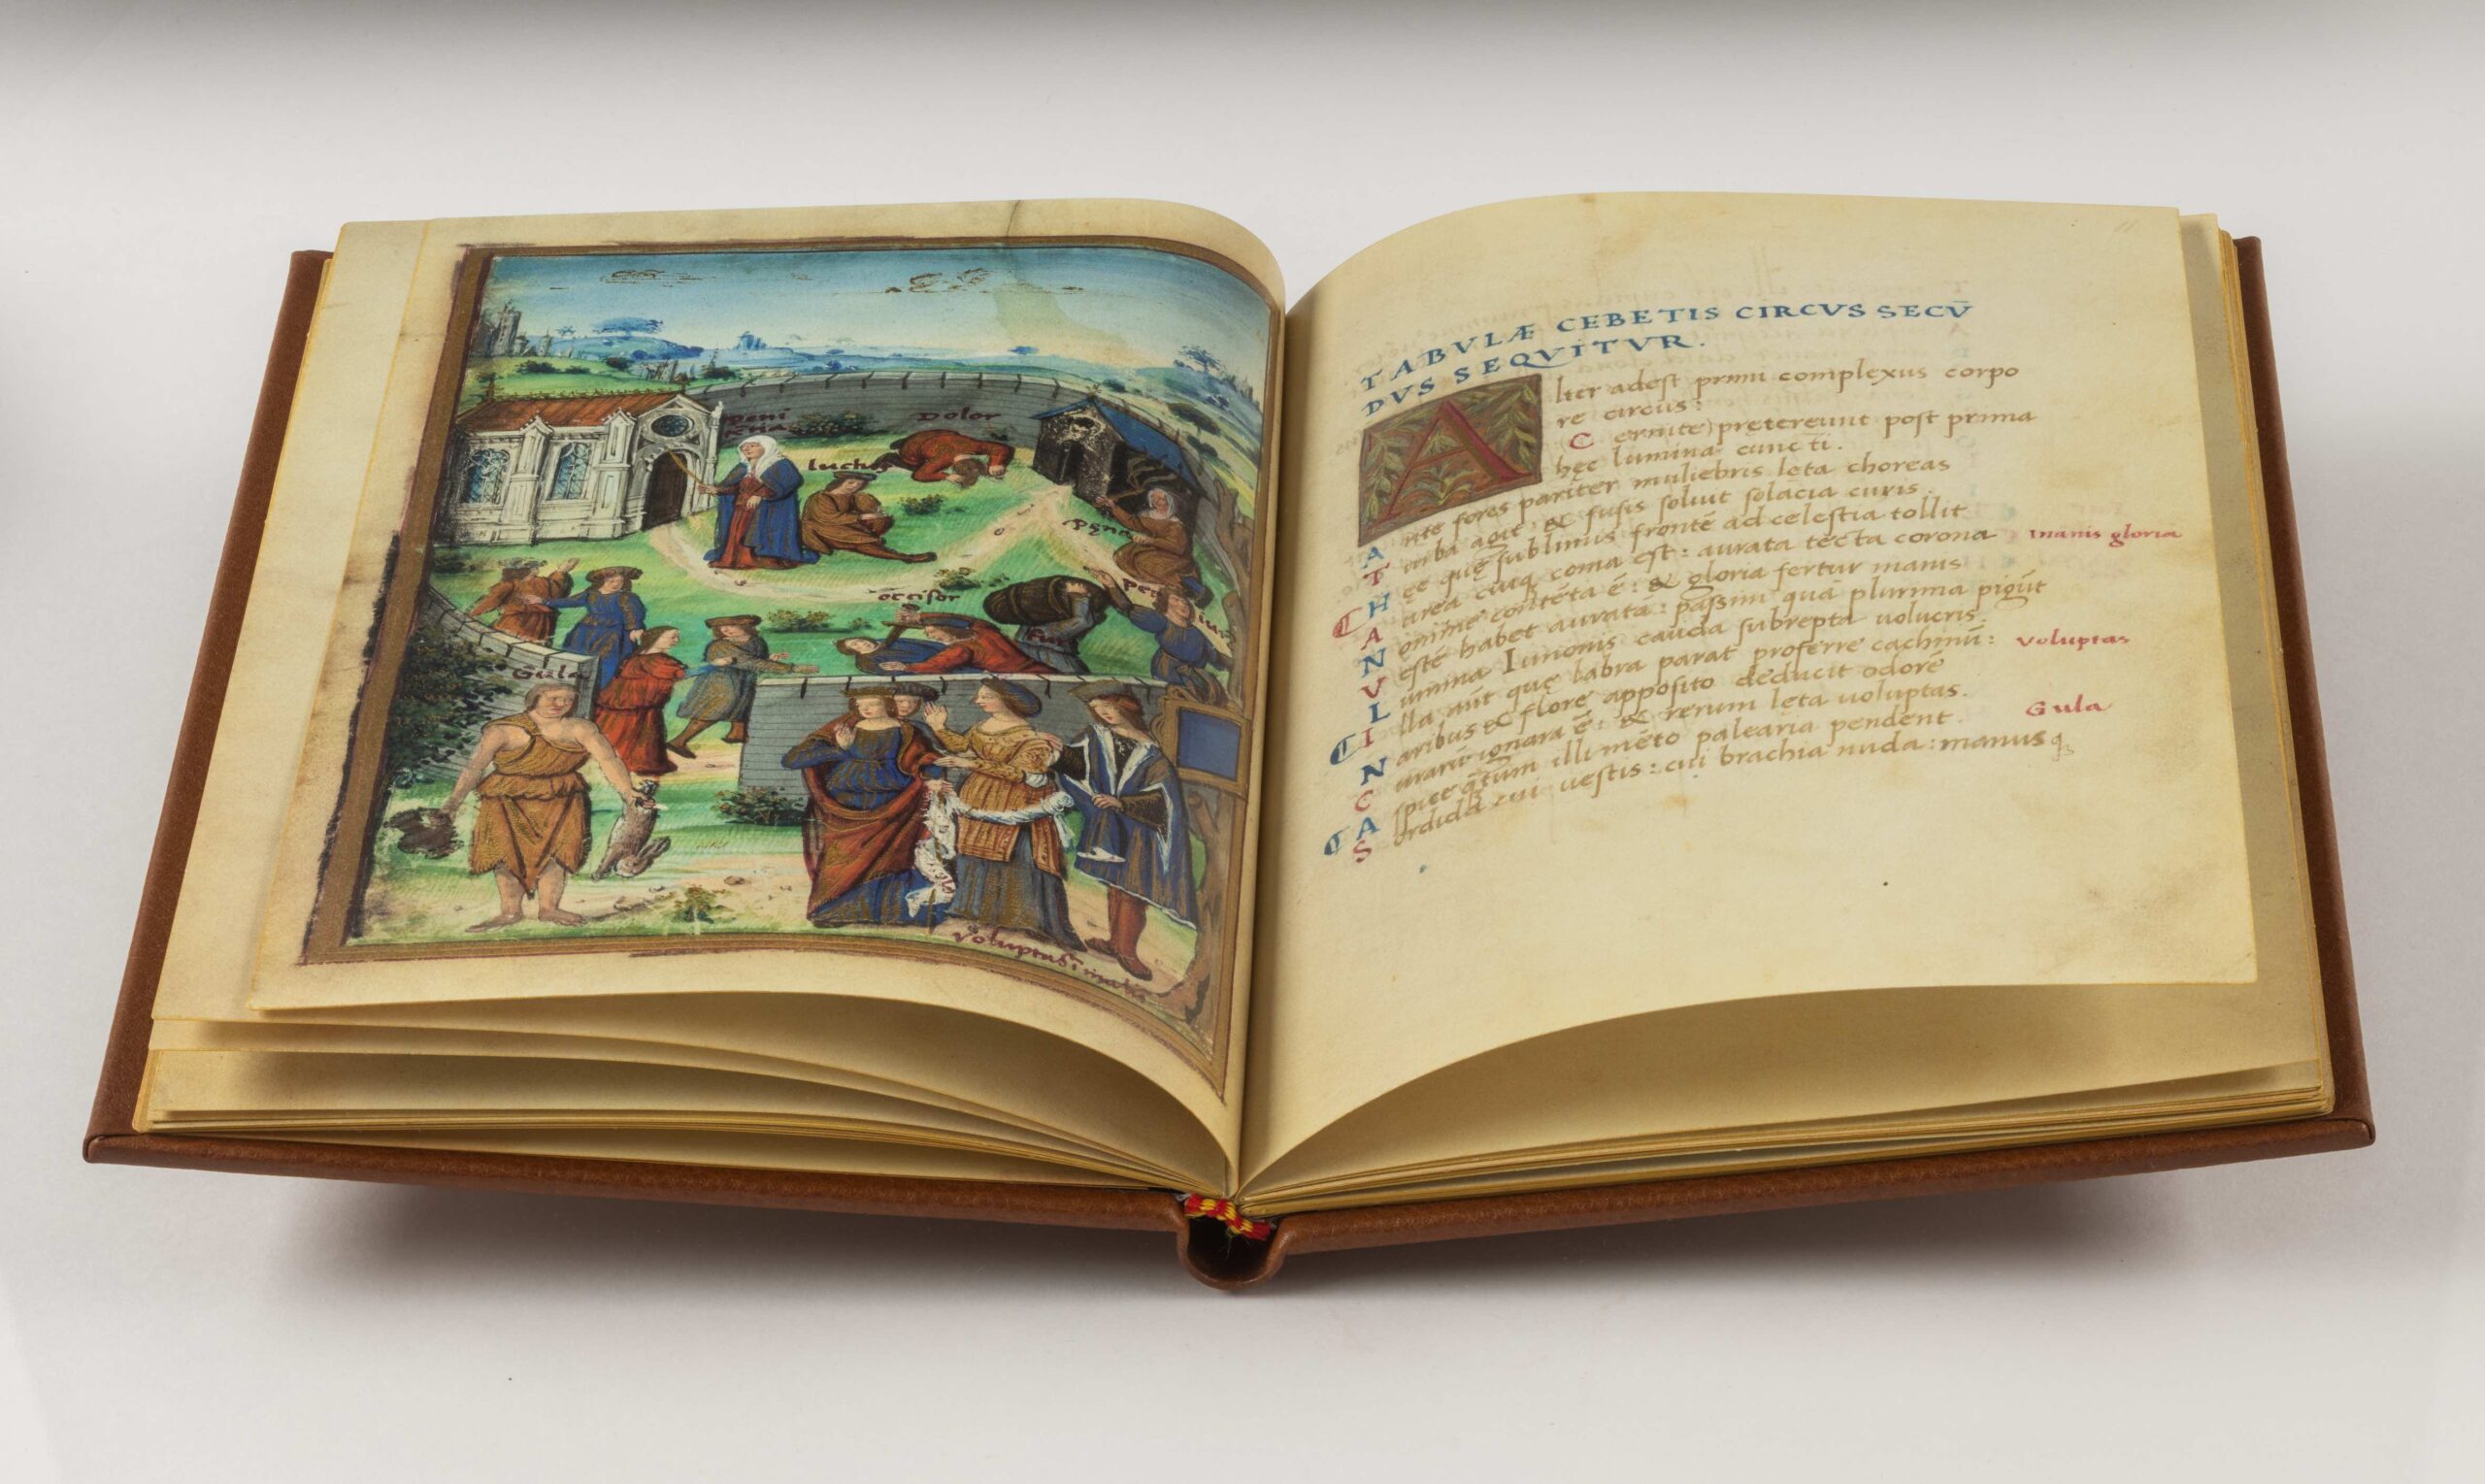 peni
tētia
Dolor
luctus
pęna
occisor
fur
Gula
voluptas
11
TABVLÆ CEBETIS CIRCVS SECV̄
DVS SEQVITVR.
Alter adest primi complexus corpo
re circus:
Cernite) pretereunt post prima
hęc lumina cuncti.
Ante fores pariter muliebris leta choreas
Turba agit: & fusis soluit solacia curis.
Hęc quę sublimis frontē ad celestia tollit
Aurea cuiq coma est: aurata tecta corona
Nomine contēta ē: & gloria fertur inanis
Vestē habet auratā: passim qua plurima pigūt
Lumina Iunonis cauda subrepta volucris.
Illa aūt quę labra parat proferre cachinū:
Naribus & flore apposito deducit odorē
Curarū ignara ē: & rerum leta uoluptas.
Aspice q̄tum illi mēto palearia pendent.
Sordida cui uestis: cui brachia nuda: manusq
Inanis gloria
Voluptas
Gula